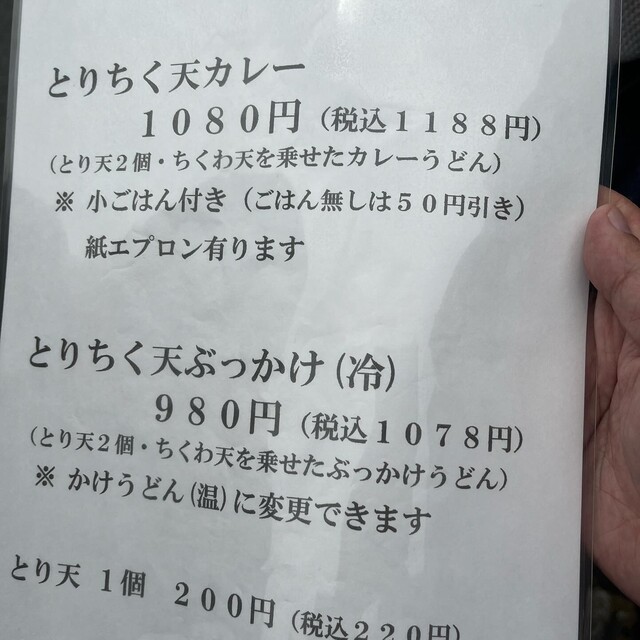 とりちく天カレー
１０８０円（税込１１８８円）
（とり天２個・ちくわ天を乗せたカレーうどん）
※ 小ごはん付き（ごはん無しは５０円引き）
紙エプロン有ります
とりちく天ぶっかけ（冷）
９８０円（税込１０７８円）
（とり天２個・ちくわ天を乗せたぶっかけうどん）
※ かけうどん（温）に変更できます
とり天 １個 ２００円（税込２２０円）